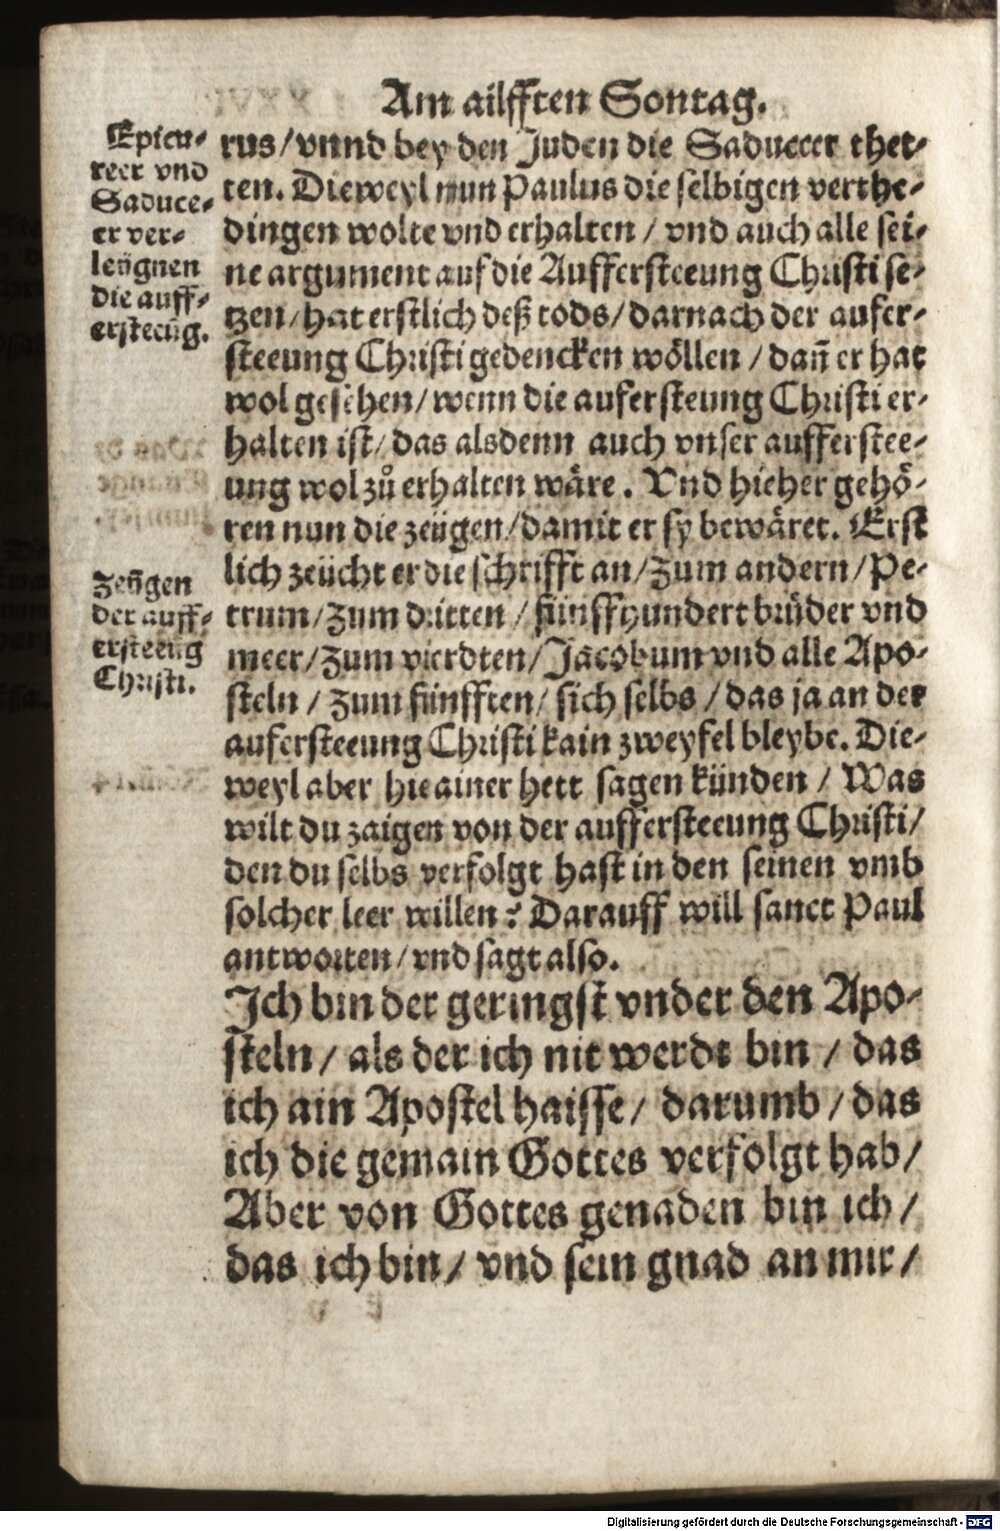 Am ailfften Sontag.
Epicu-
reer vnd
Saduce-
er ver-
leügnen
die auff-
ersteeūg.
rus/vnnd bey den Juden die Saduceer thet-
ten. Dieweyl nun Paulus die selbigen verthe-
dingen wolte vnd erhalten / vnd auch alle sei-
ne argument auf die Aufferstteeung Christi se-
tzen/hat erstlich deß tods/darnach der aufer-
steeung Christi gedencken wöllen /dañ er hat
wol gesehen/wenn die aufersteung Christi er-
halten ist/das alsdenn auch vnser aufferstee-
ung wol zů erhalten wäre. Vnd hieher gehö-
ren nun die zeügen/damit er sy bewäret. Erst
Zeügen
der auff-
ersteeūg
Christi.
lich zeücht er die schrifft an/Zum andern/Pe-
trum/Zum dritten / fünffhundert brüder vnd
meer/Zum vierdten/Jacobum vnd alle Apo-
steln / Zum fünfften/ sich selbs /das ja an der
aufersteeung Christi kain zweyfel bleybe. Die-
weyl aber hie ainer hett sagen künden / Was
wilt du zaigen von der aufferstteeung Christi/
den du selbs verfolgt hast in den seinen vmb
solcher leer willen? Darauff will sanct Paul
antworten/vnd sagt also.
Ich bin der geringst vnder den Apo-
steln/ als der ich nit werdt bin / das
ich ain Apostel haisse/ darumb /das
ich die gemain Gottes verfolgt hab/
Aber von Gottes genaden bin ich/
das ich bin/ vnd sein gnad an mir/
Digitalisierung gefördert durch die Deutsche Forschungsgemeinschaft - DFG